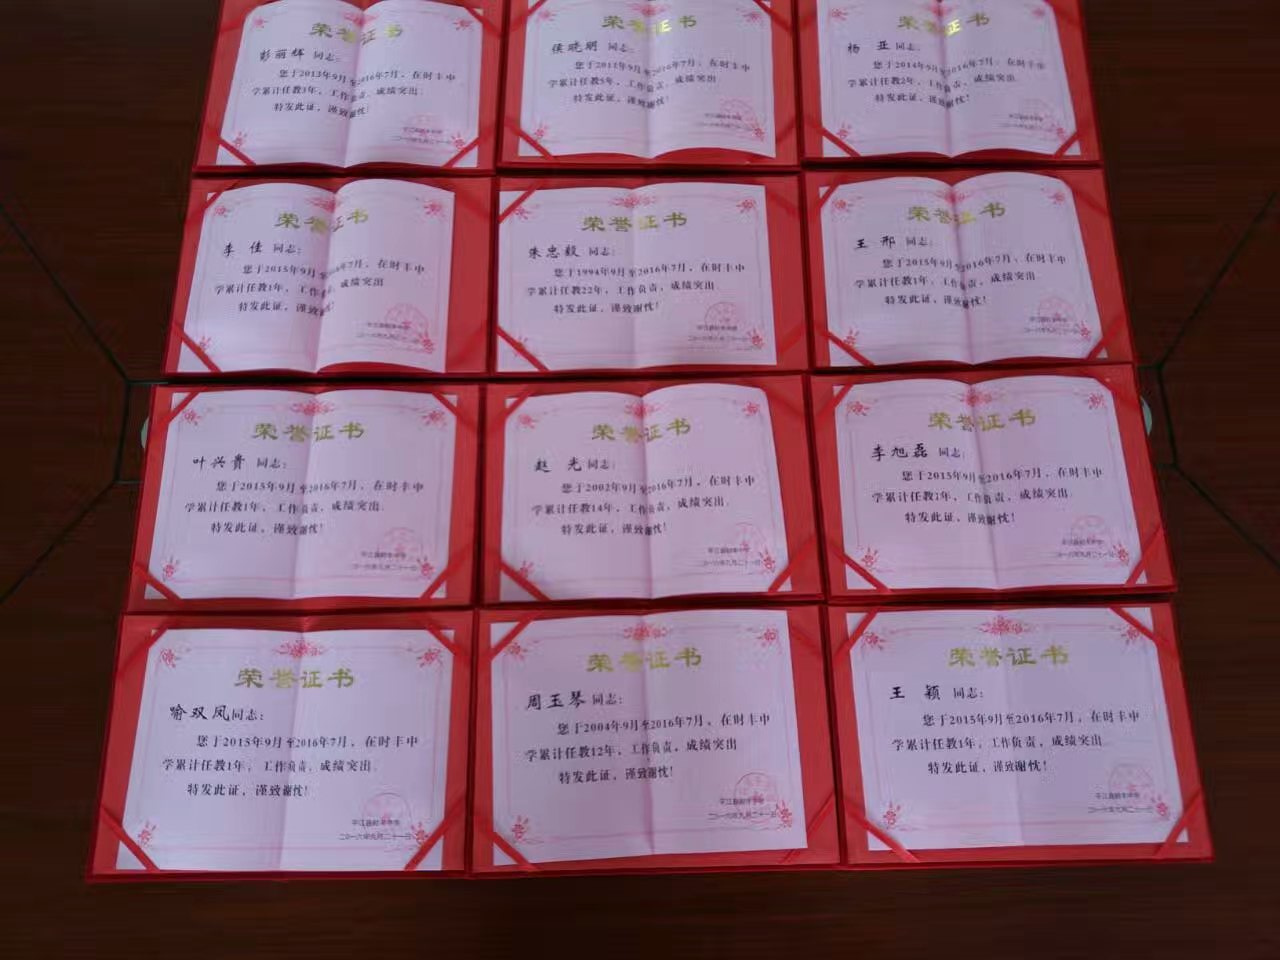 荣誉证书
彭丽辉 同志:
您于2013年9月至2016年7月，在时丰中
学累计任教3年，工作负责，成绩突出.
特发此证，谨致谢忱!
二〇一六年九月二十一日
荣誉证书
侯晓明 同志:
您于2011年9月至2016年7月，在时丰中
学累计任教5年，工作负责，成绩突出.
特发此证，谨致谢忱!
二〇一六年九月二十一日
荣誉证书
杨 亚 同志:
您于2014年9月至2016年7月，在时丰中
学累计任教2年，工作负责，成绩突出.
特发此证，谨致谢忱!
二〇一六年九月二十一日
荣誉证书
李 佳 同志:
您于2015年9月至2016年7月，在时丰中
学累计任教1年，工作负责，成绩突出.
特发此证，谨致谢忱!
平江县时丰中学
二〇一六年九月二十一日
荣誉证书
朱忠毅 同志:
您于1994年9月至2016年7月，在时丰中
学累计任教22年，工作负责，成绩突出.
特发此证，谨致谢忱!
平江县时丰中学
二〇一六年九月二十一日
荣誉证书
王 邢 同志:
您于2015年9月至2016年7月，在时丰中
学累计任教1年，工作负责，成绩突出.
特发此证，谨致谢忱!
平江县时丰中学
二〇一六年九月二十一日
荣誉证书
叶兴贵 同志:
您于2015年9月至2016年7月，在时丰中
学累计任教1年，工作负责，成绩突出.
特发此证，谨致谢忱!
平江县时丰中学
二〇一六年九月二十一日
荣誉证书
赵 光 同志:
您于2002年9月至2016年7月，在时丰中
学累计任教14年，工作负责，成绩突出.
特发此证，谨致谢忱!
平江县时丰中学
二〇一六年九月二十一日
荣誉证书
李旭磊 同志:
您于2015年9月至2016年7月，在时丰中
学累计任教1年，工作负责，成绩突出.
特发此证，谨致谢忱!
平江县时丰中学
二〇一六年九月二十一日
荣誉证书
喻双凤同志:
您于2015年9月至2016年7月，在时丰中
学累计任教1年，工作负责，成绩突出.
特发此证，谨致谢忱!
平江县时丰中学
二〇一六年九月二十一日
荣誉证书
周玉琴 同志:
您于2004年9月至2016年7月，在时丰中
学累计任教12年，工作负责，成绩突出
特发此证，谨致谢忱!
平江县时丰中学
二〇一六年九月二十一日
荣誉证书
王 颖 同志:
您于2015年9月至2016年7月，在时丰中
学累计任教1年，工作负责，成绩突出.
特发此证，谨致谢忱!
平江县时丰中学
二〇一六年九月二十一日